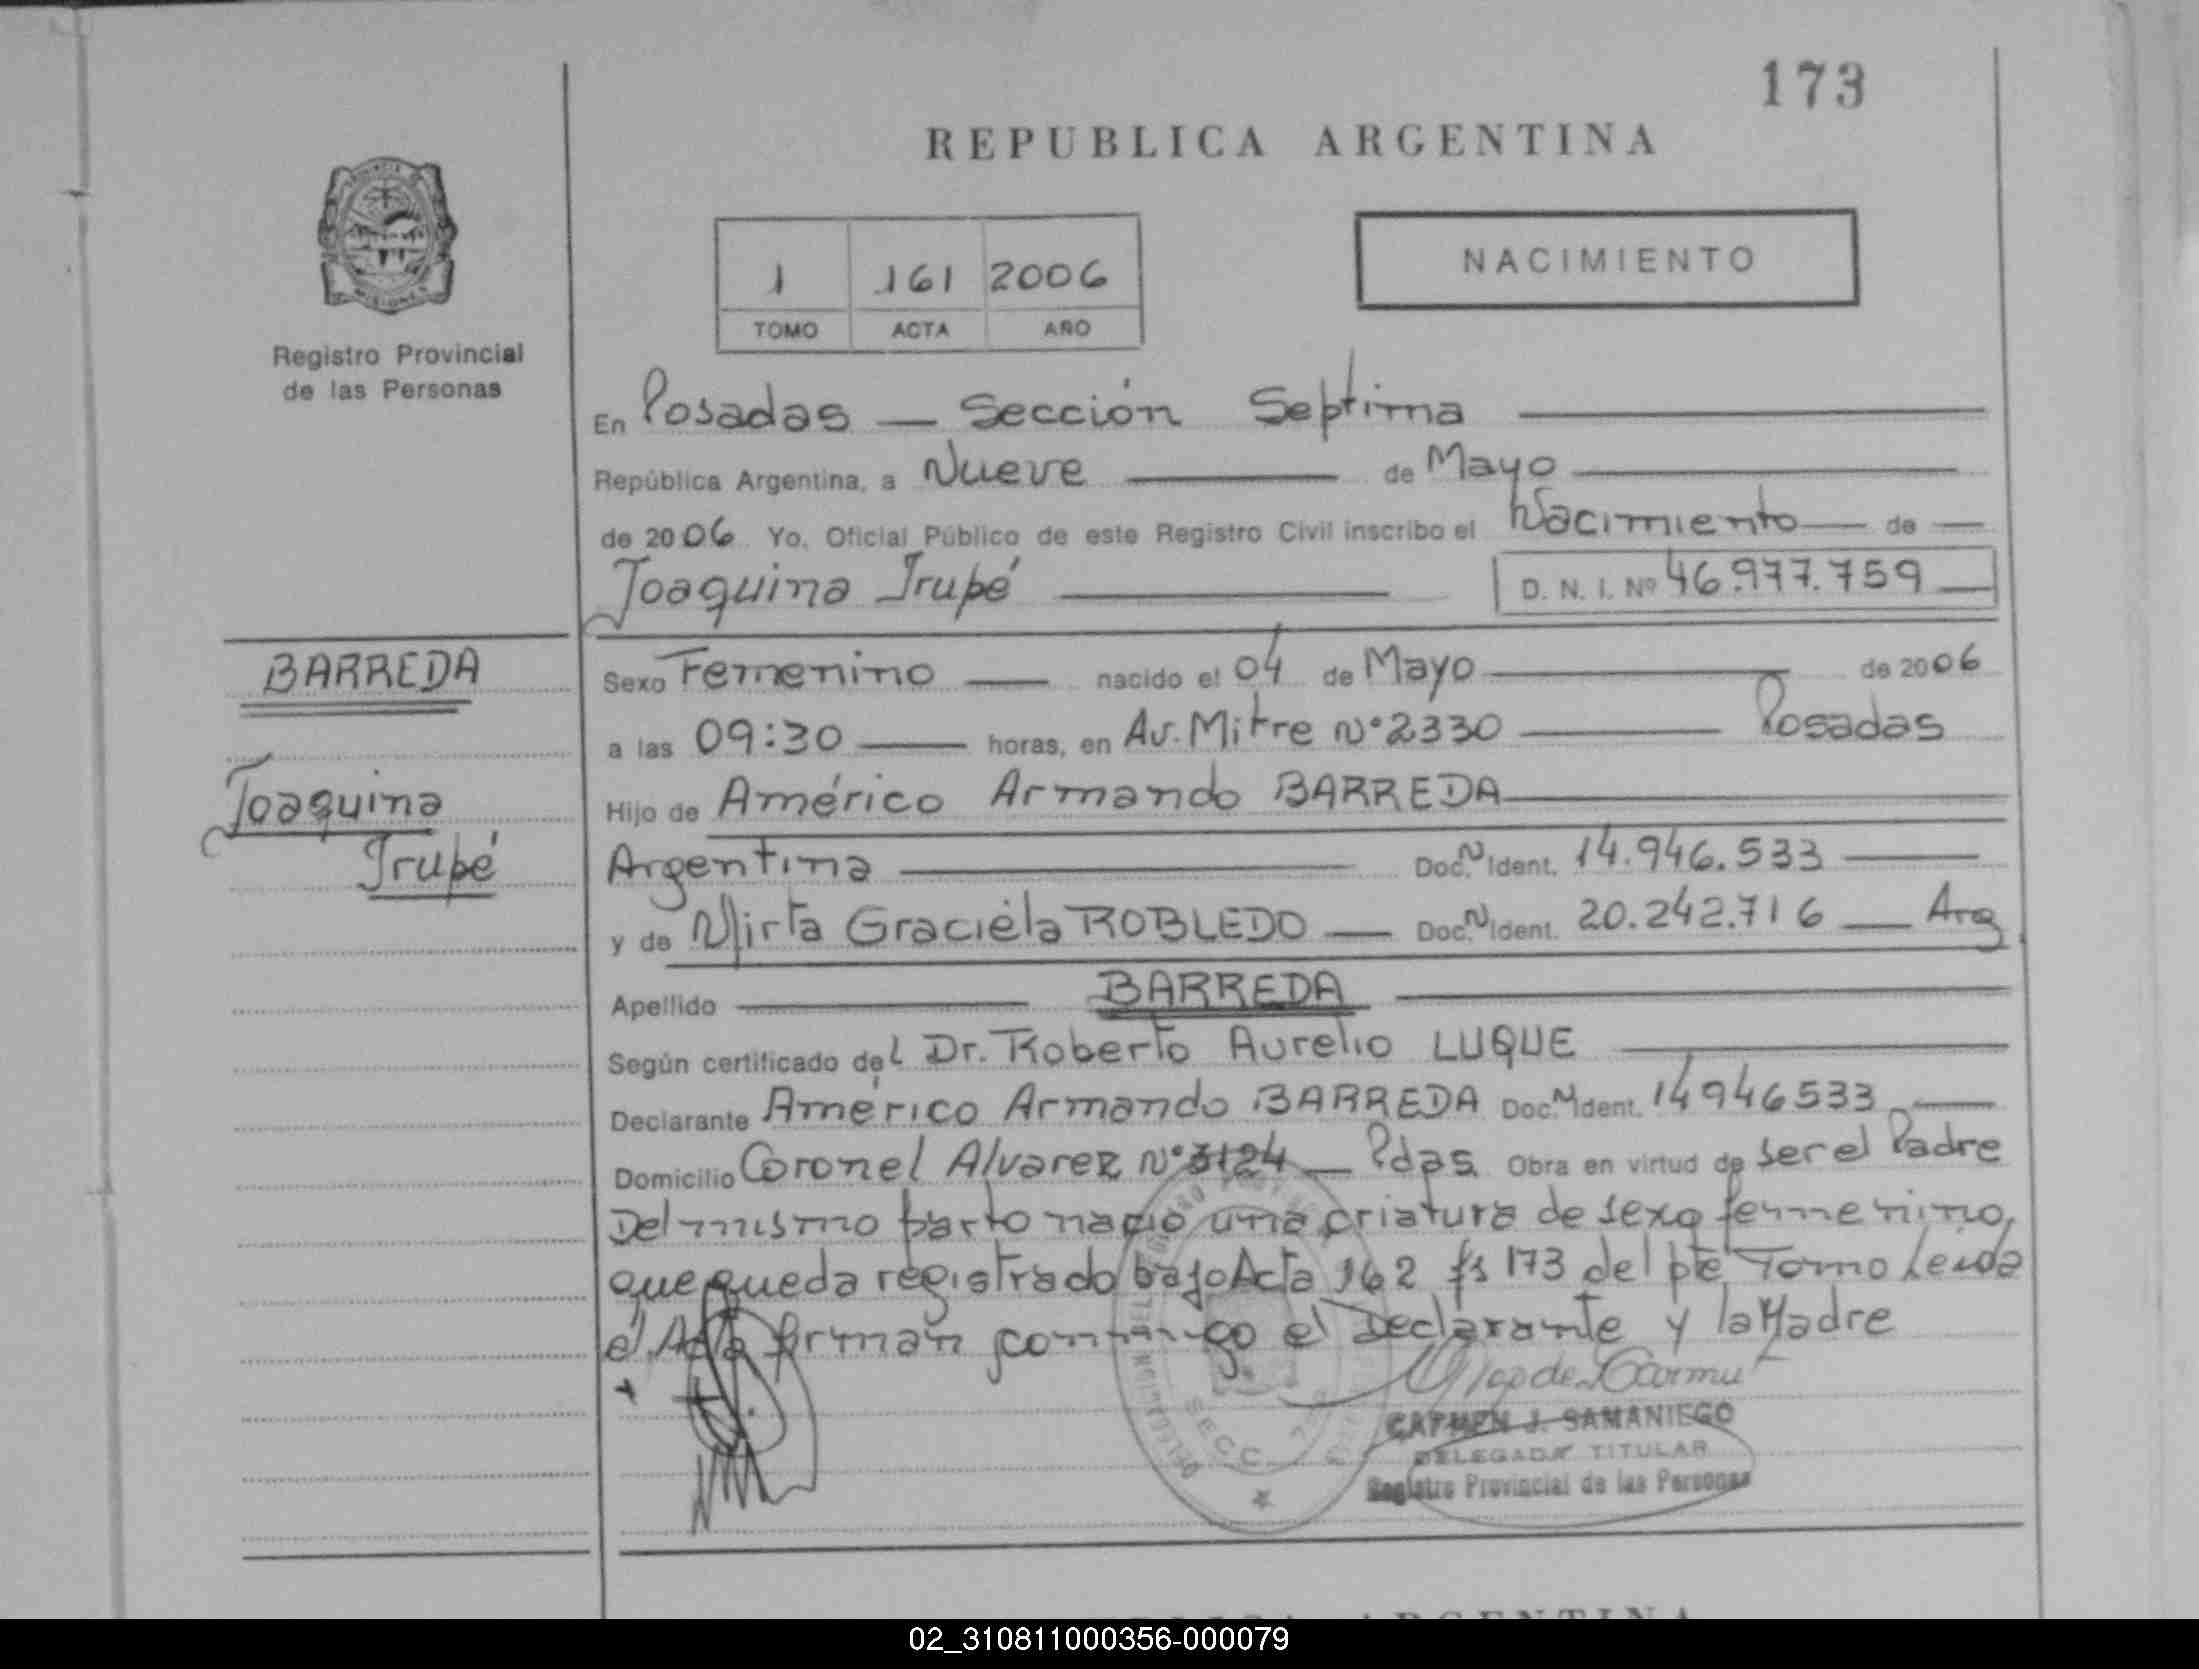 173
REPUBLICA ARGENTINA
Registro Provincial
de las Personas
1 161 2006
TOMO ACTA AÑO
NACIMIENTO
En Posadas — Sección Septima
República Argentina, a Nueve — de Mayo
de 2006 Yo, Oficial Público de este Registro Civil inscribo el Nacimiento — de —
Joaquina Irupé — D. N. I. Nº 46.977.759 —
BARREDA
Joaquina
Irupé
Sexo Femenino — nacido el 04 de Mayo — de 2006
a las 09:30 — horas, en Av. Mitre Nº 2330 — Posadas
Hijo de Américo Armando BARREDA —
Argentina — Doc. N Ident. 14.946.533 —
y de Mirta Graciela ROBLEDO — Doc. N Ident. 20.242.716 — Arg.
Apellido — BARREDA —
Según certificado del Dr. Roberto Aurelio LUQUE —
Declarante Américo Armando BARREDA Doc. N Ident. 14946533 —
Domicilio Coronel Alvarez Nº 3124 — Pdas. Obra en virtud de ser el Padre
Del mismo parto nacio una criatura de sexo femenino,
que queda registrado bajo Acta 162 fs 173 del pte Tomo Leida
el Acta firman conmigo el Declarante y la Madre
CARMEN J. SAMANIEGO
DELEGADA TITULAR
Registro Provincial de las Personas
SECC. 7
02_310811000356-000079